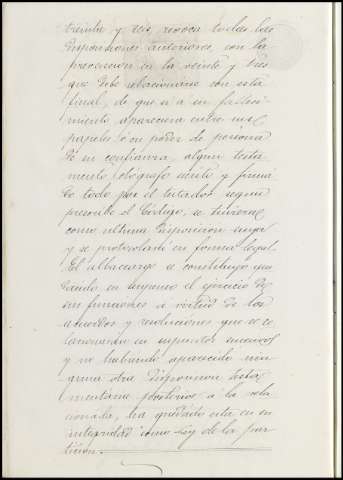 treinta y seis, revoca todas las
disposiciones anteriores, con la
prevencion en la veinte y tres
que debe relacionarse con esta
final, de que si a su falleci-
miento apareciera entre sus
papeles ó en poder de persona
de su confianza, algun testa-
mento ológrafo escrito y firma-
do todo por el testador segun
prescribe el Código, se tuviera
como ultima disposicion suya
y se protocolase en forma legal.
El albaceazgo se constituyó
en suspenso el ejercicio de
sus funciones á virtud de los
acuerdos y resoluciones que se re-
lacionarán en supuestos sucesivos
y no habiendo aparecido nin-
guna otra disposicion testa-
mentaria posterior á la rela-
cionada, ha quedado esta en su
integridad como ley de la par-
ticion.